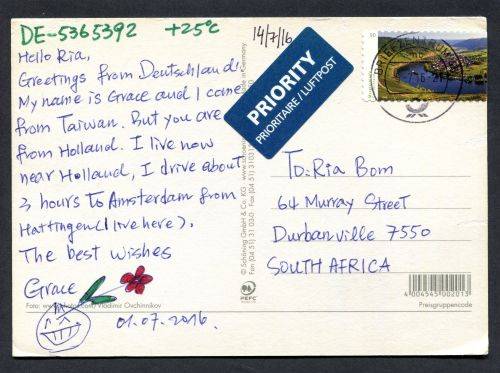 DE-5365392 +25°C
14/7/16
Hello Ria,
Greetings from Deutschland.
My name is Grace and I come
from Taiwan. But you are
from Holland. I live now
near Holland, I drive about
3 hours to Amsterdam from
Hattingen (I live here).
The best wishes
Grace
01.07.2016.
PRIORITY
PRIORITAIRE/LUFTPOST
BRIEFZENTRUM
To: Ria Bom
64 Murray Street
Durbanville 7550
SOUTH AFRICA
Foto: Vladimir Ovchinnikov
PEFC
4 004545 002013
Preisgruppencode